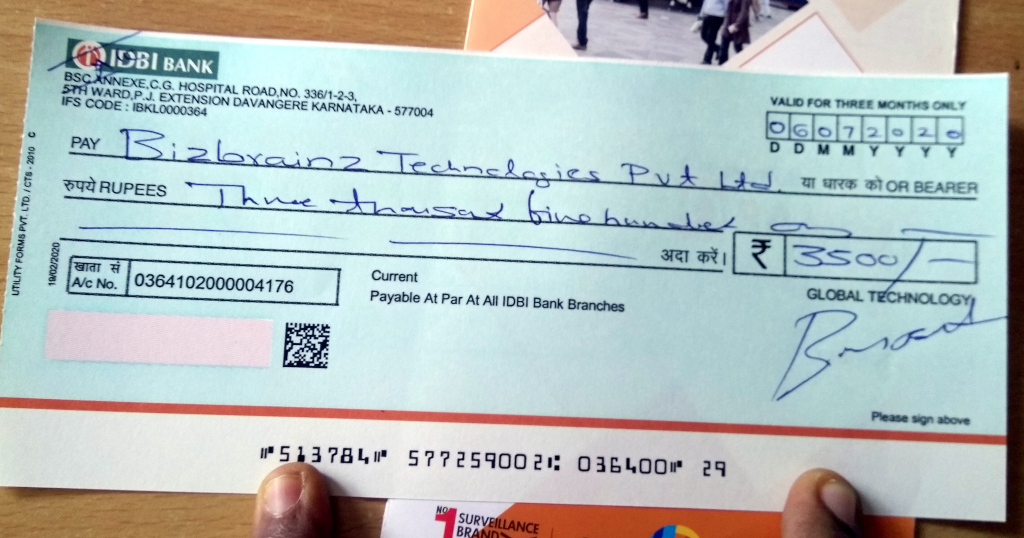 IDBI BANK
BSC ANNEXE,C.G. HOSPITAL ROAD,NO. 336/1-2-3,
5TH WARD,P.J. EXTENSION DAVANGERE KARNATAKA - 577004
IFS CODE : IBKL0000364
VALID FOR THREE MONTHS ONLY
06072020
D D M M Y Y Y Y
PAY Bizbrainz Technologies Pvt Ltd. या धारक को OR BEARER
रुपये RUPEES Three thousand five hundred
अदा करें। ₹ 3500/-
खाता सं
A/c No. 0364102000004176
Current
Payable At Par At All IDBI Bank Branches
GLOBAL TECHNOLOGY
Please sign above
⑈513784⑈ 577259002⑆ 036400⑈ 29
UTILITY FORMS PVT. LTD. / CTS - 2010 C
19/02/2020
NO.
1 SURVEILLANCE
BRAND